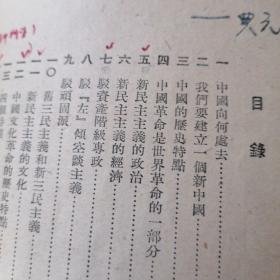 目錄
一 中國向何處去
二 我們要建立一個新中國
三 中國的歷史特點
四 中國革命是世界革命的一部分
五 新民主主義的政治
六 新民主主義的經濟
七 駁資產階級專政
八 駁『左』傾空談主義
九 駁頑固派
一〇 舊三民主義和新三民主義
一一 新民主主義的文化
一二 中國文化革命的歷史特點
一三 四個時期